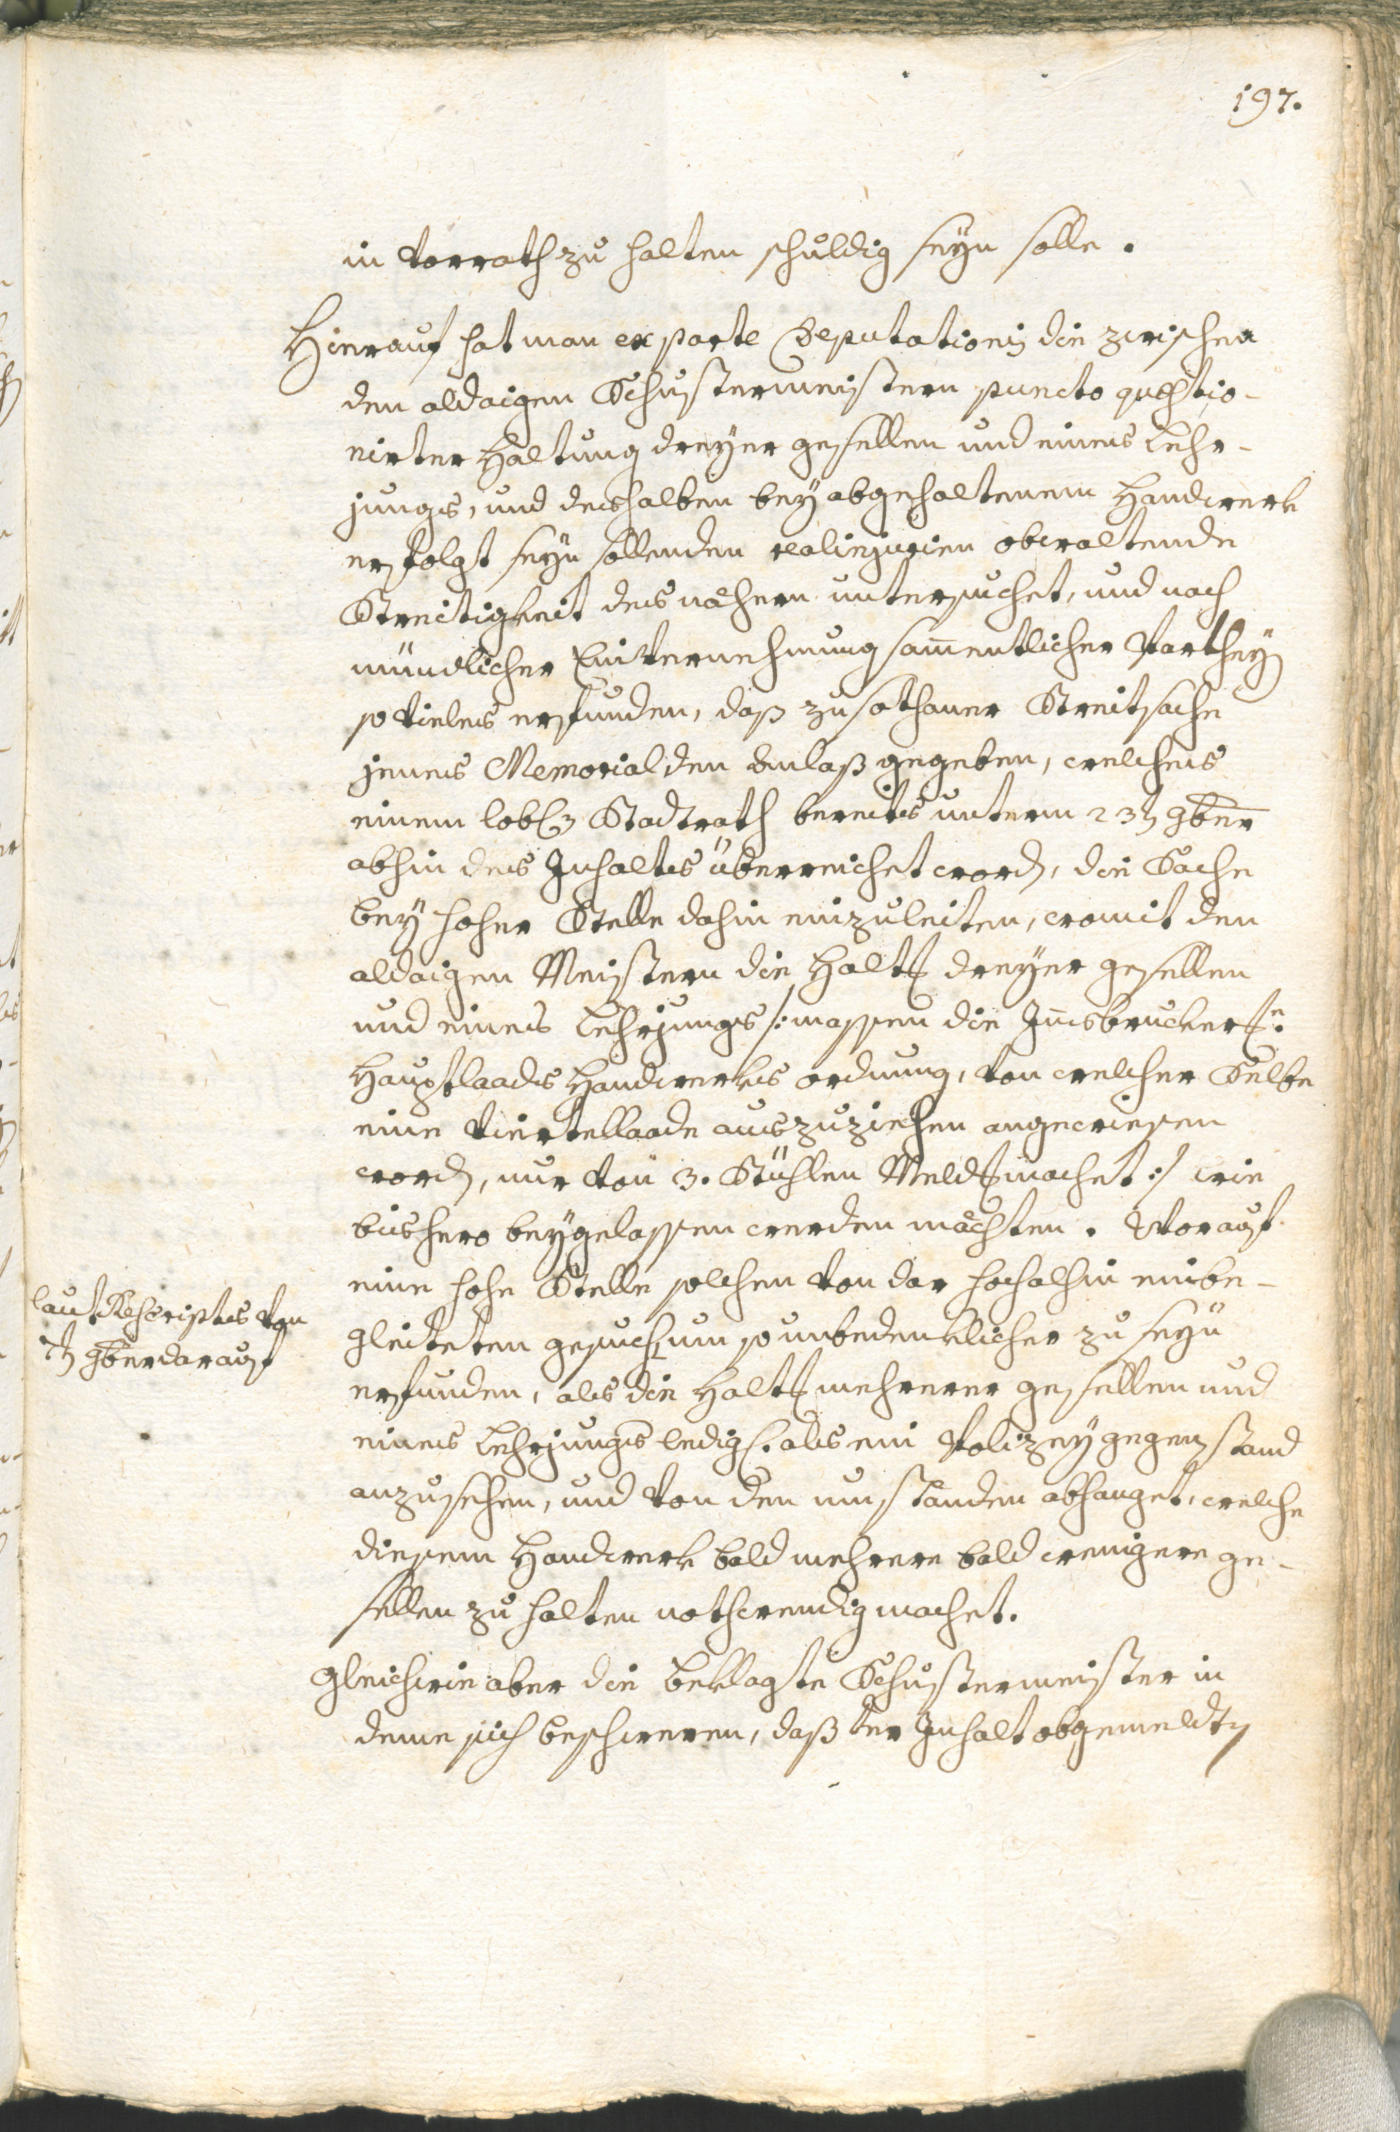 197.
in Vorrath zu halten schuldig seyn solle.
Hierauf hat man ex parte Deputationis die zwischen
den aldaigen Schustermeistern puncto quæstio-
nirter Haltung dreyer gesellen und eines Lehr-
jungs, und deshalben bey abgehaltenem Handwerk
erfolgt seyn sollenden realinjurien obwaltende
Streitigkeit des nähern untersuchet, und nach
mündlicher Einvernehmung sam̄entlicher Parthey
so vieles erfunden, daß zu sothaner Streitsache
jenes Memorial den Anlaß gegeben, welches
einem löbl. Stadtrath bereits unterm 23t 9ber
abhin des Inhaltes überreichet word, die Sache
bey hoher Stelle dahin einzuleiten, womit den
aldaigen Meistern die Halt dreyer gesellen
und eines Lehrjungs /: massen die Iñsbrucker
Hauptlaads Handwerks ordnung, von welcher Selbe
eine Viertellaade auszuziehen angewiesen
word, nur von 3. Stühlen Meld machet :/ wie
bishero beygelassen werden möchten. Worauf
eine hohe Stelle solchen von dar hochalhin einbe-
gleiteten gesuch um so unbedenklicher zu seyn
laut Rescriptes von
7t 9ber darauf
erfunden, als die Halt mehrerer gesellen und
eines Lehrjungs ledigl. als ein Polizeygegenstand
anzusehen, und von den umständen abhanget, welche
diesem Handwerk bald mehrere bald wenigere ge-
sellen zu halten nothwendig machet.
Gleichwie aber die beklagte Schustermeister in
deme sich beschweren, daß der Inhalt obgemeldt